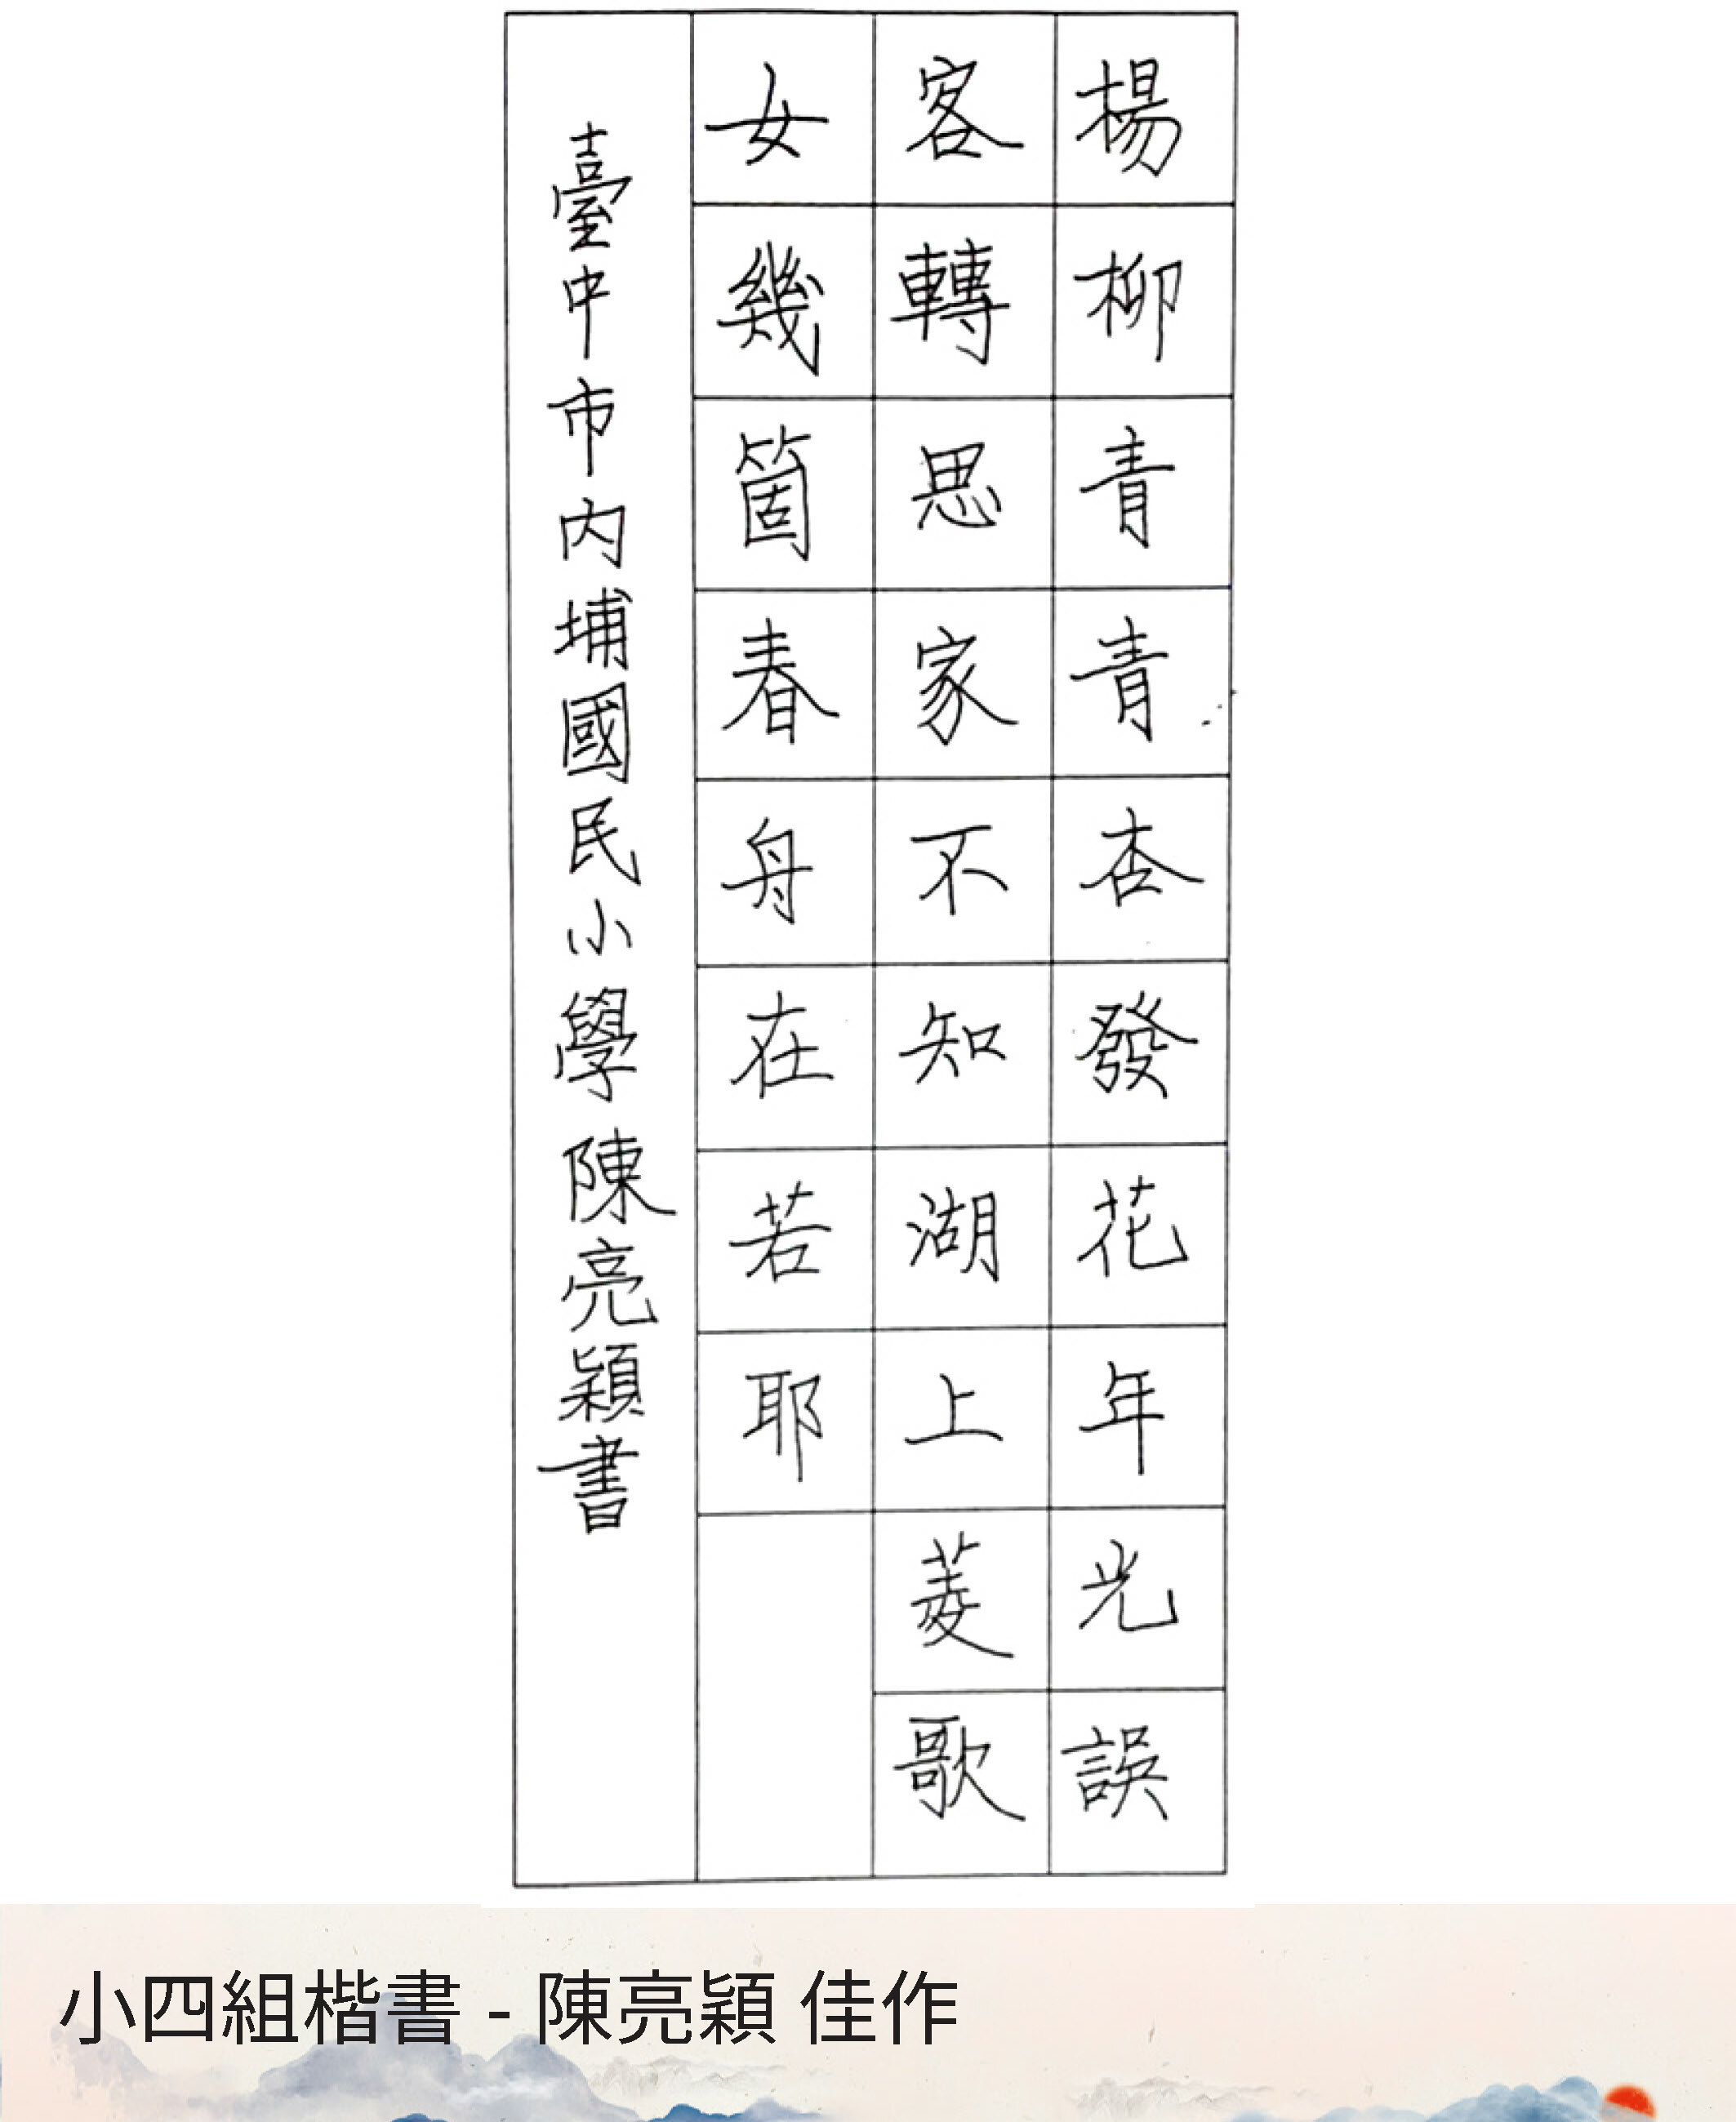 楊柳青青杏發花年光誤
客轉思家不知湖上菱歌
女幾箇春舟在若耶
臺中市內埔國民小學陳亮穎書
小四組楷書 - 陳亮穎 佳作